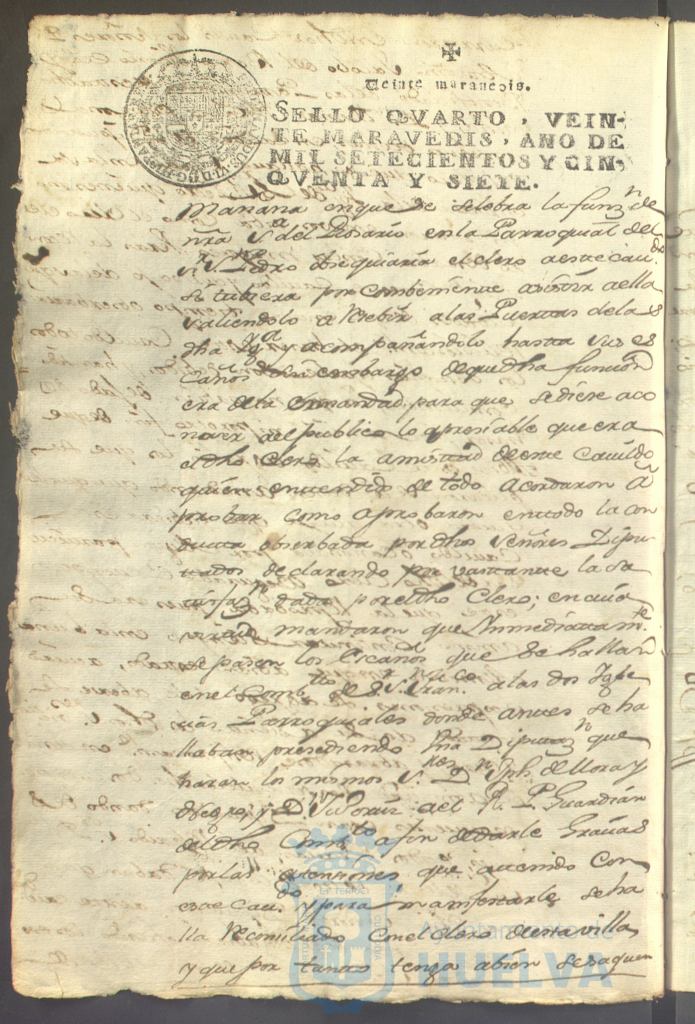 ✠
Veinte maravedis.
SELLO QVARTO, VEIN-
TE MARAVEDIS, AÑO DE
MIL SETECIENTOS Y CIN-
QVENTA Y SIETE.
mañana en que se selebra la funzn de
nrã Sa del Rosario en la Parroquial del
Sr Sn Pedro obsequiaria el clero a este Cavdo
si tubiera por combeniente asistir a ella
saliendolo a resebir a las Puertas de la
dha Yga y acompañandolo hasta sus es
caños sin embargo de que dha función
era de la ermandad, para que se diese aco
noser al publico lo apresiable que era
a dho Clero la amistad de este Cavildo
quien entendido de todo acordaron a
probar, como aprobaron en todo la con
ducta obserbada por dhos señores Dipu
tados declarando por vastante la sa
tisfazn dada por el dho Clero; en cuia
virtud mandaron que Inmediatamte
se pasen los Escaños que se hallan
en el Combto de Sr Sn Franco a las dos Igle
sias Parroquiales donde antes se ha
llaban, presediendo Vna Diputazn que
haran los mismos Sres Dn Jph de Mora y
Negro, y Dn Ortiz a el R. P. Guardián
de dho Combto a fin de darle Grasias
por las atensiones que a tenido con
este Cavdo y para manifestarle se ha
lla Reconsiliado con el clero de esta villa
y que por tanto tenga a bien se saquen
Ayuntamiento de
HUELVA